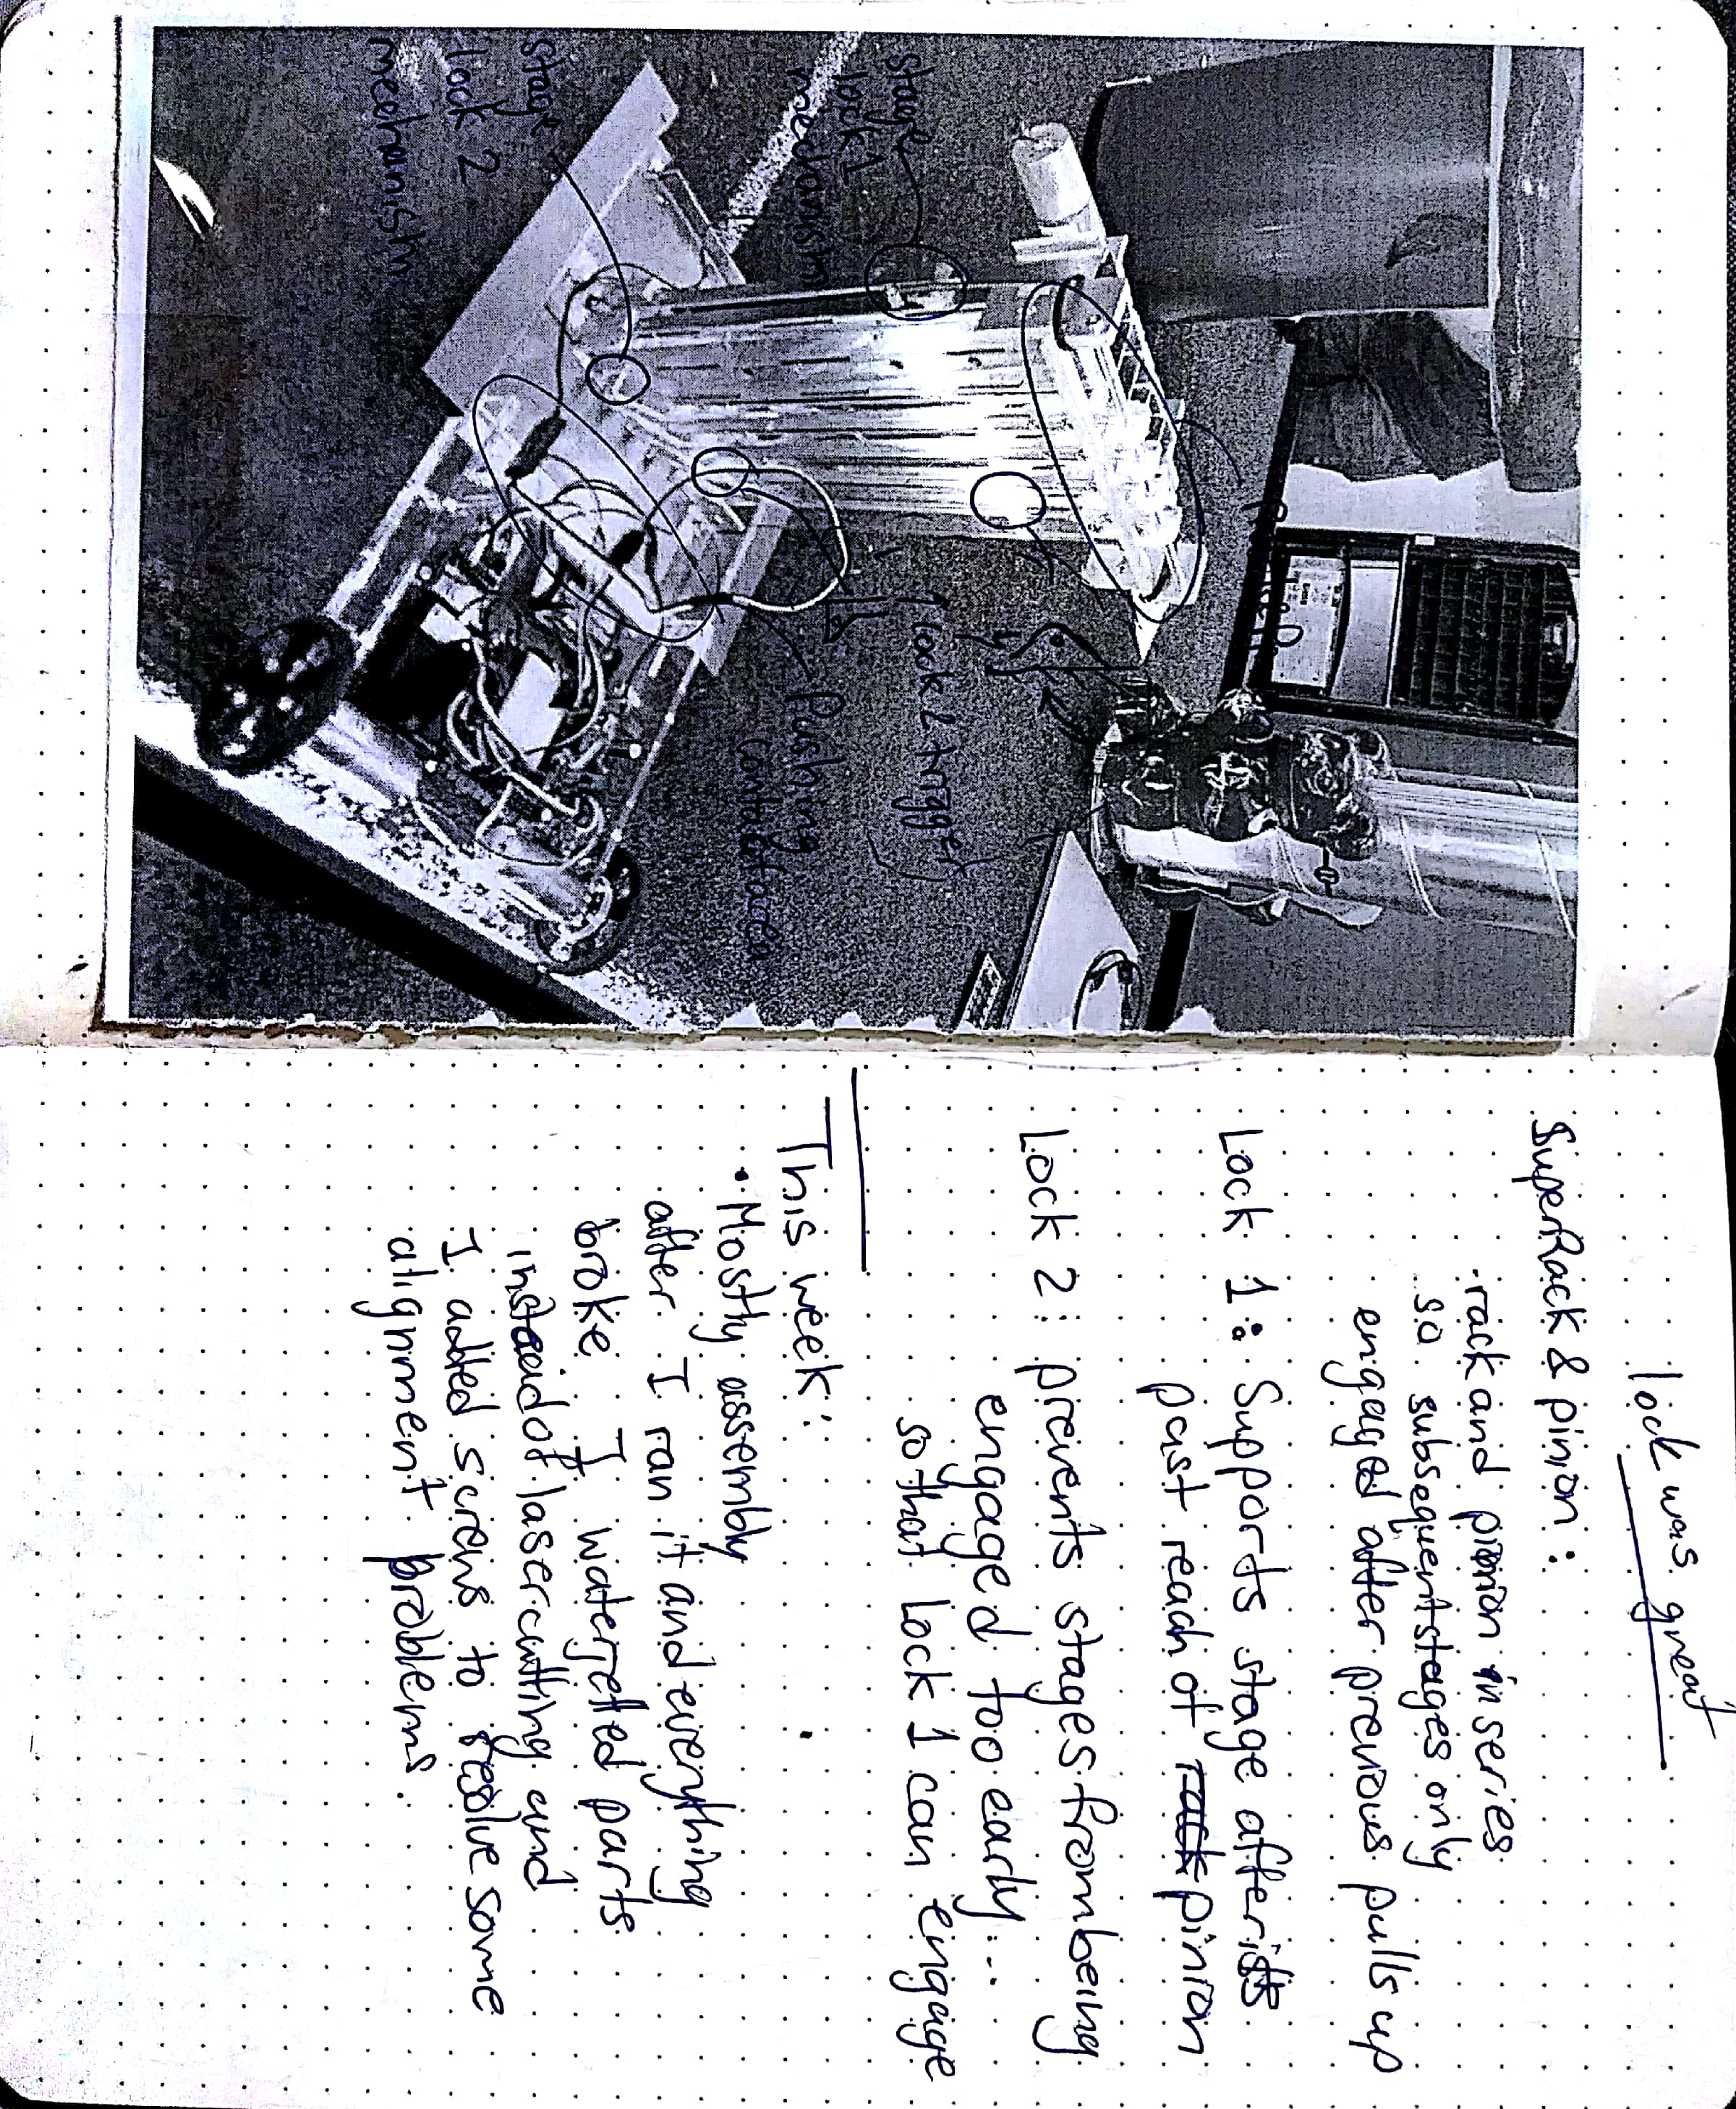 stage
lock 1
mechanism
lock 2 trigger
Pushing
contact area
stage
lock 2
mechanism
lock was great
SuperRack & pinion :
rack and pinion in series
so subsequent stages only
engaged after previous pulls up
Lock 1: Supports stage after its
past reach of rack pinion
Lock 2: prevents stages from being
engaged too early...
so that Lock 1 can engage
This week:
• Mostly assembly
after I ran it and everything
broke I waterjetted parts
instead of laser cutting and
I added screws to resolve some
alignment problems.